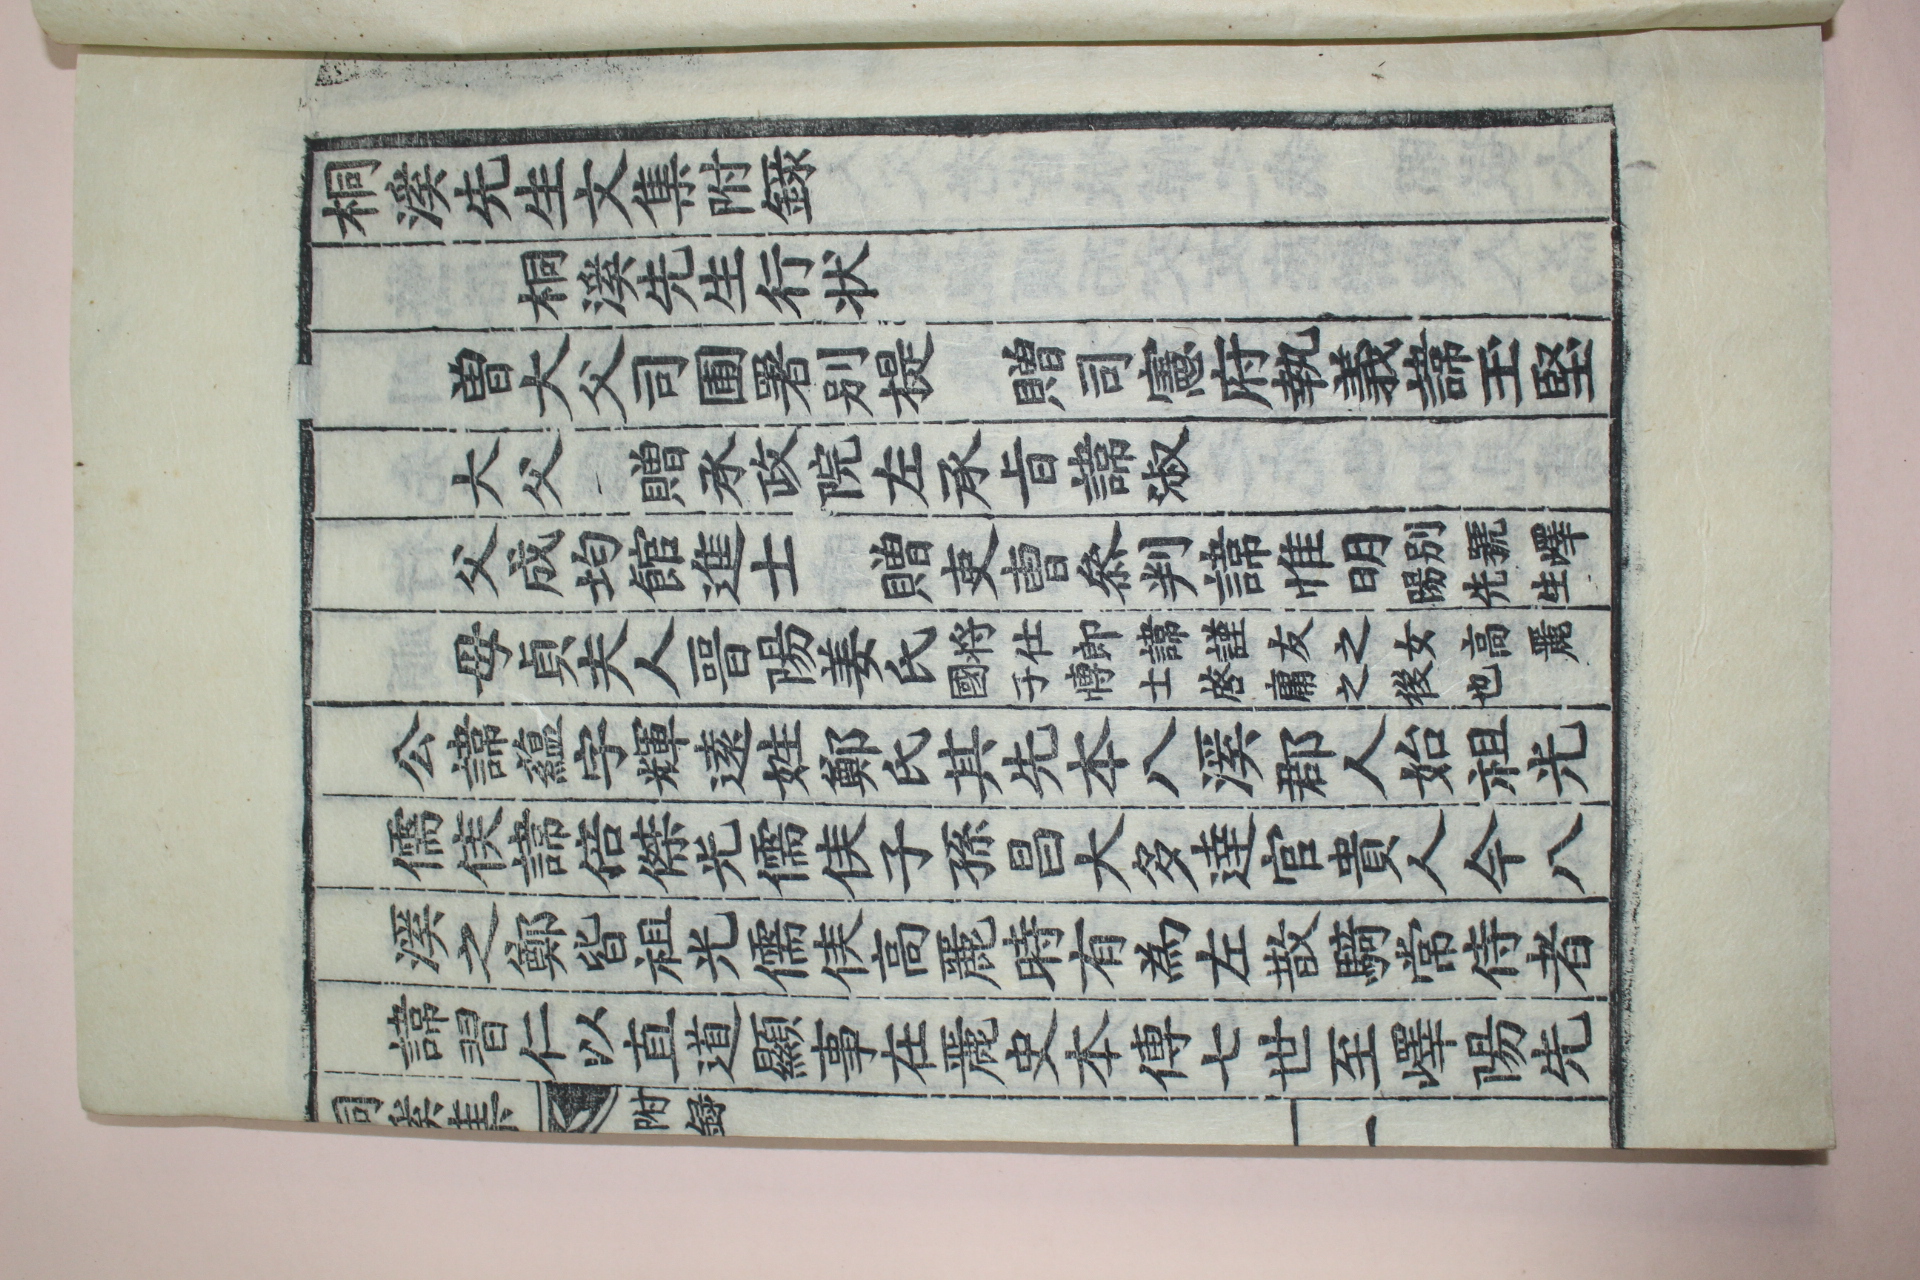 桐溪先生文集附錄
桐溪先生行狀
曾大父司圃署別提 贈司憲府執義諱玉堅
大父 贈承政院左承旨諱淑
父成均館進士 贈吏曹參判諱惟明別號嶧陽先生
母貞夫人晉陽姜氏將仕郎諱謹友之女高麗國子愽士啓庸之後也
公諱蘊字輝遠姓鄭氏其先本八溪郡人始祖光
儒侯諱倍傑光儒侯子孫昌大多達官貴人今八
溪之鄭皆祖光儒侯高麗時有為左散騎常侍者
諱習仁以直道顯事在麗史本傳七世至嶧陽先
桐溪集 附錄 一